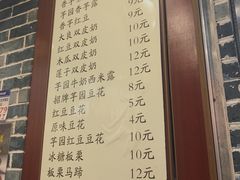 香芋红豆 9元
大良双皮奶 10元
红豆双皮奶 10元
木瓜双皮奶 12元
莲子双皮奶 12元
芋园牛奶西米露 8元
招牌芋园豆花 5元
红豆豆花 4元
原味豆花 10元
芋园红豆豆花 10元
冰糖板栗 12元
板栗马蹄